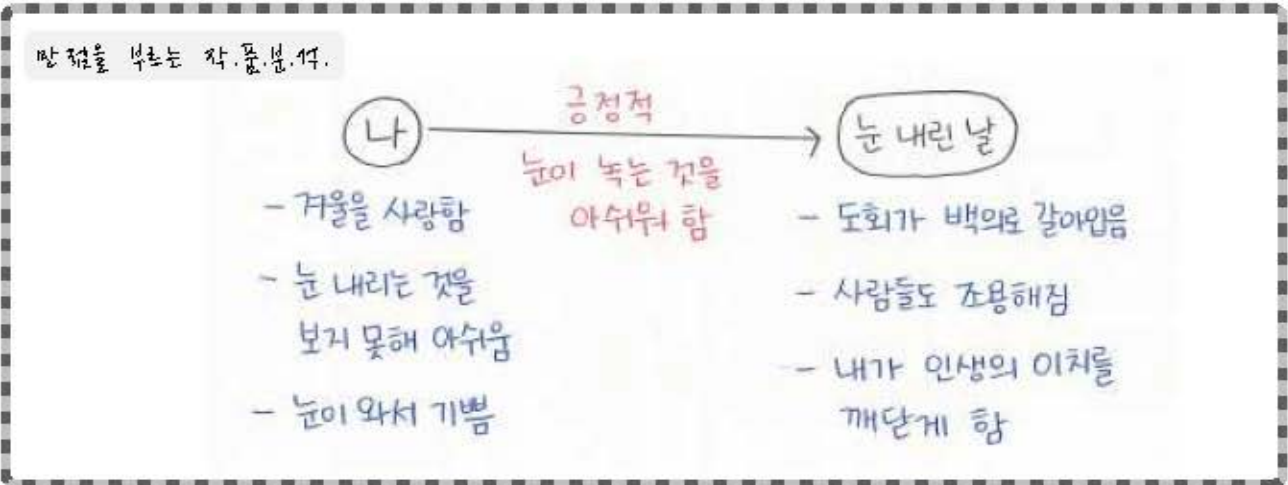 만점을 부르는 작.품.분.석.
나
긍정적
눈이 녹는 것을
아쉬워 함
눈 내린 날
- 겨울을 사랑함
- 눈 내리는 것을
보지 못해 아쉬움
- 눈이 와서 기쁨
- 도회가 백의로 갈아입음
- 사람들도 조용해짐
- 내가 인생의 이치를
깨닫게 함